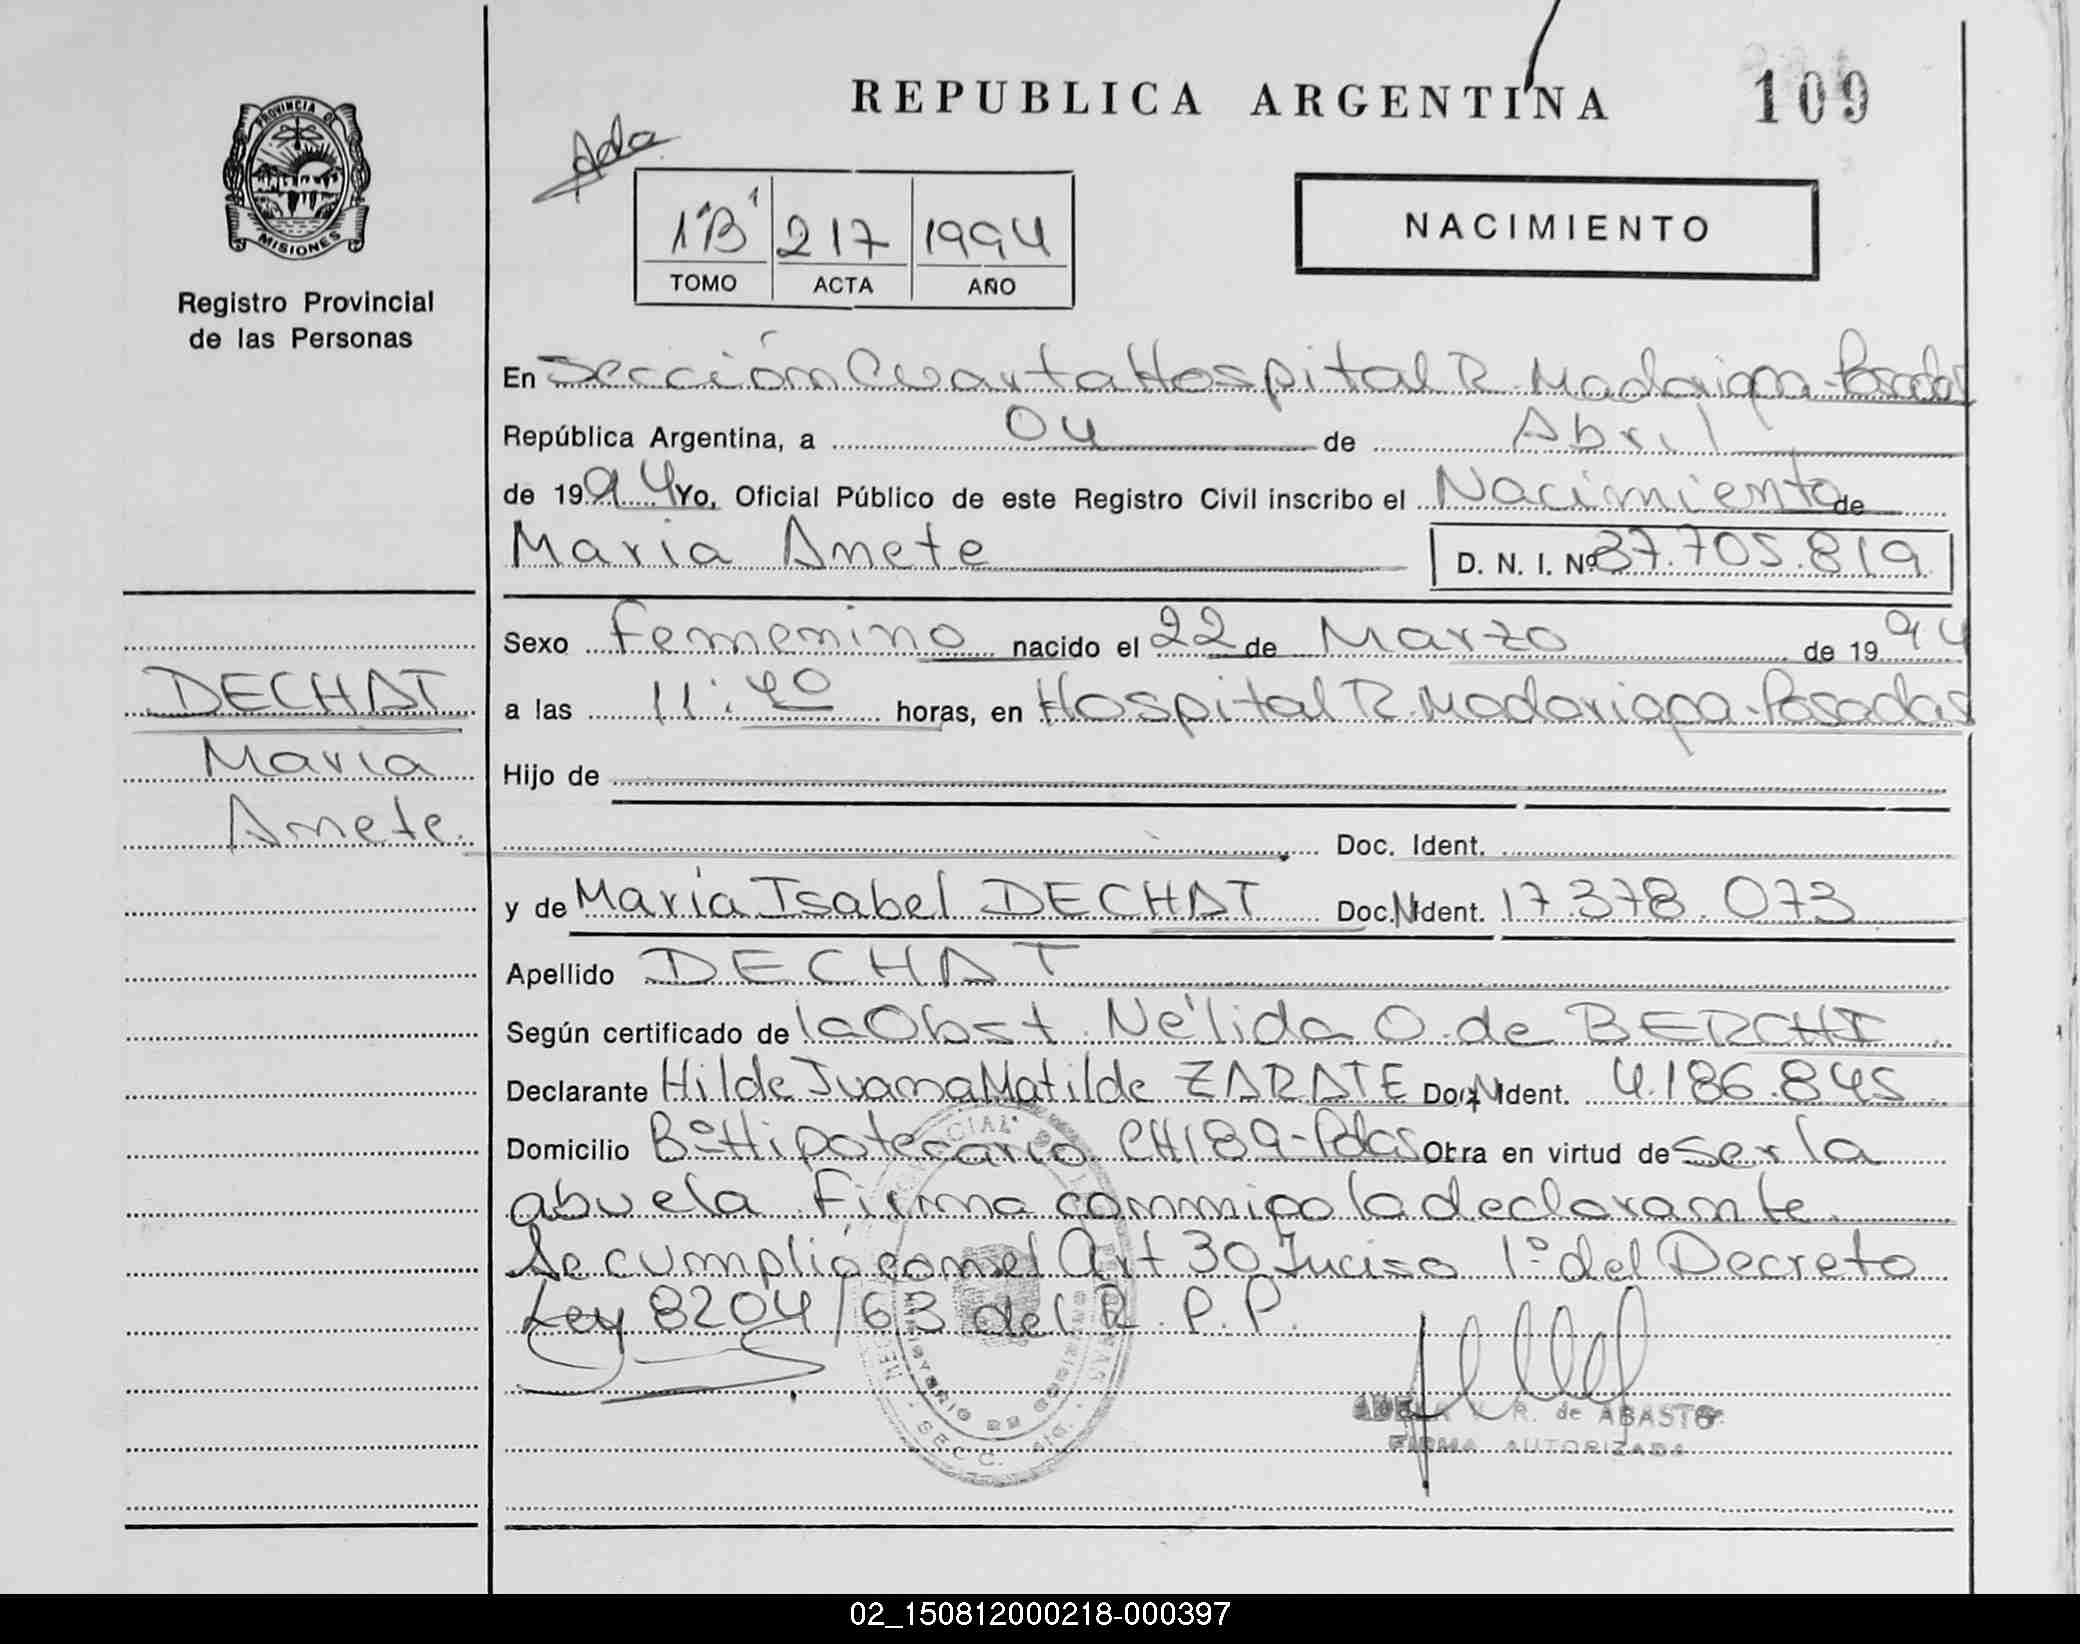 REPUBLICA ARGENTINA
109
PROVINCIA DE
MISIONES
Registro Provincial
de las Personas
Ada
1"B" 217 1994
TOMO ACTA AÑO
NACIMIENTO
En Sección Cuarta Hospital R. Madariaga - Posadas
República Argentina, a 04 de Abril
de 1994 Yo, Oficial Público de este Registro Civil inscribo el Nacimiento de
Maria Anete D. N. I. Nº 37.705.819
Sexo Femenino nacido el 22 de Marzo de 1994
a las 11:40 horas, en Hospital R. Madariaga - Posadas
Hijo de
Doc. Ident.
y de María Isabel DECHAT Doc. N Ident. 17.378.073
Apellido DECHAT
Según certificado de la Obst. Nélida O. de BERCHI
Declarante Hilde Juana Matilde ZARATE Doc. N Ident. 4.186.845
Domicilio Bº Hipotecario CH189-Pdas Obra en virtud de ser la
abuela. Firma conmigo la declarante.
Se cumplió con el Art 30 Inciso 1º del Decreto
Ley 8204/63 del R. P. P.
DECHAT
Maria
Anete.
R. de ABASTO
FIRMA AUTORIZADA
02_150812000218-000397